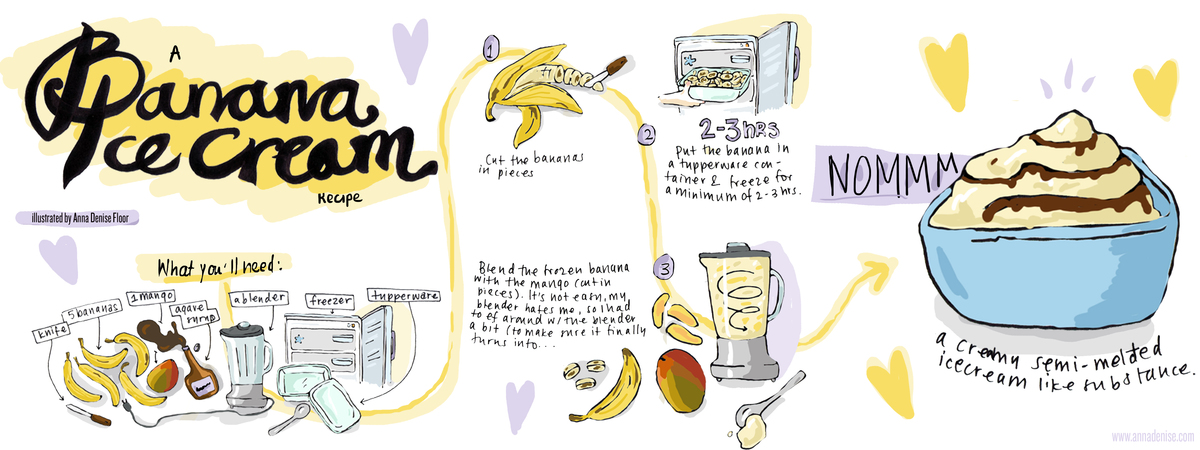 A
Banana
Ice Cream
Recipe
illustrated by Anna Denise Floor
What you'll need:
knife
5 bananas
1 mango
agave
syrup
a blender
freezer
tupperware
1
Cut the bananas
in pieces
2
2-3 hrs
Put the banana in
a tupperware con-
tainer & freeze for
a minimum of 2-3 hrs.
3
Blend the frozen banana
with the mango (cut in
pieces). It's not easy, my
blender hates me, so I had
to ef around w/ the blender
a bit (to make sure it finally
turns into...
NOMMM
a creamy semi-melted
icecream like substance.
www.annadenise.com